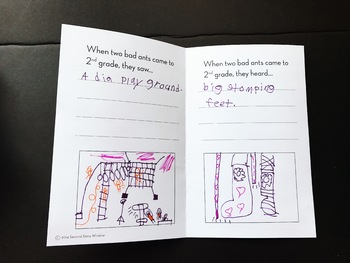 When two bad ants came to
2nd grade, they saw...
A dia play ground.
When two bad ants came to
2nd grade, they heard...
big stomping
feet.
© 2014 Second Story Window